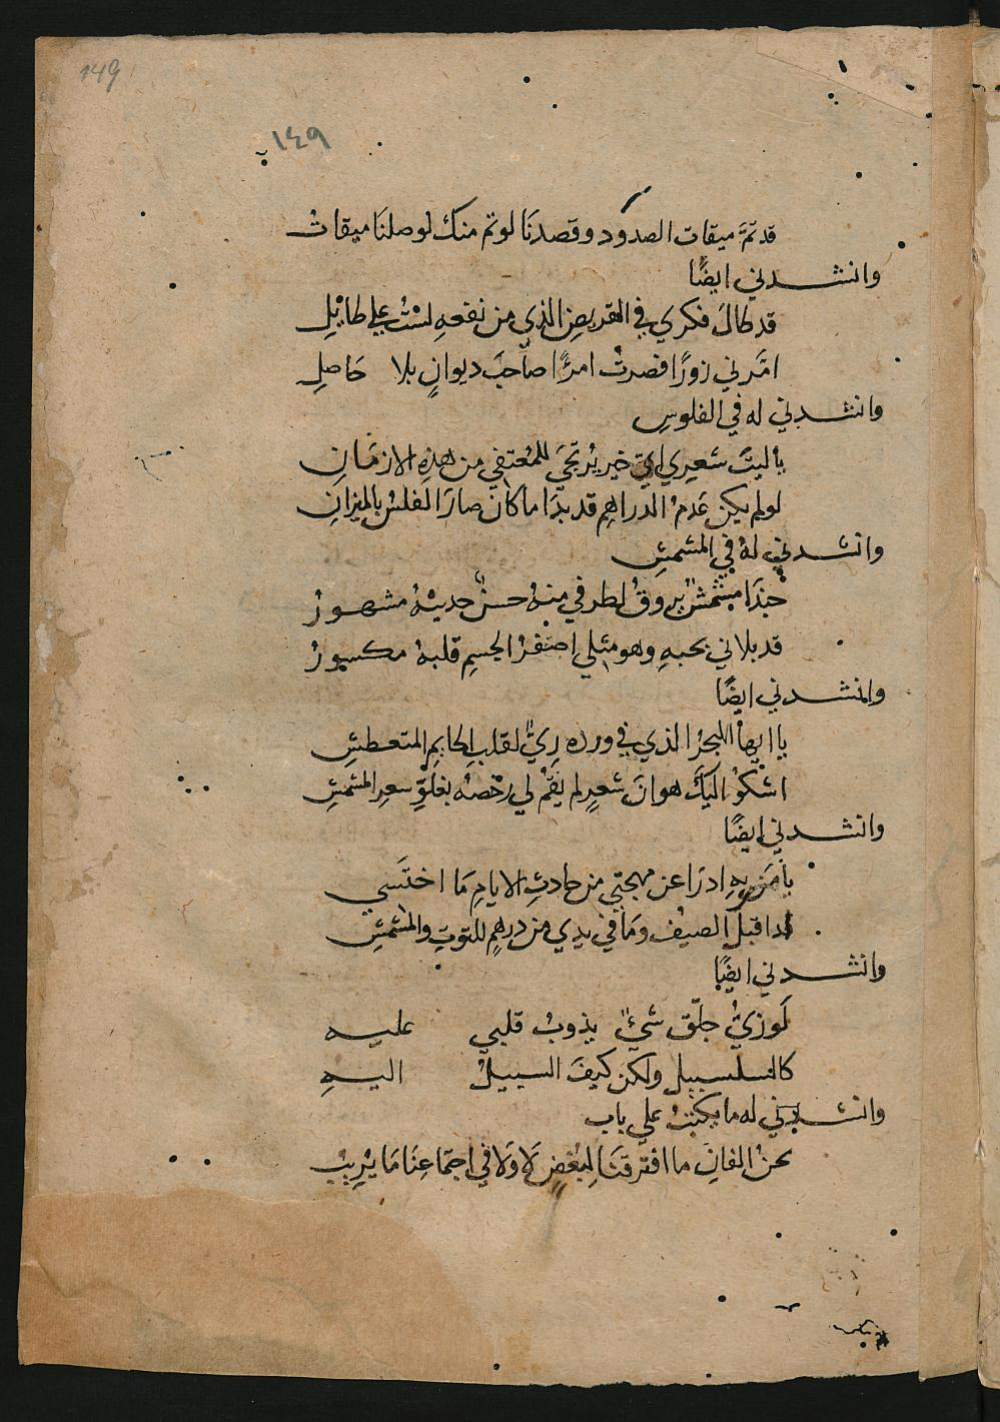 149
١٤٩
قد تمَّ ميقات الصدود وقصدنَا لو تم منك لوصلنَا ميقاتُ
وانشدني ايضًا
قد طالَ فكري في القريضِ الذي من نفعهِ لستُ علي طايلِ
امَّرني زورًا فصرتُ امرًا صاحبَ ديوانٍ بلا حَاصلِ
وانشدني له في الفلوسِ
ياليتَ شعري ايّ خير يُرتجَي للمُعتفي من هذهِ الازمَانِ
لو لم يكن عَدمُ الدراهمِ قد بدَا ما كانَ صارَ الفلسُ بالميزانِ
وانشدني لهُ في المشمشِ
حبذَا مشمشٌ يروقُ لطرفي منهُ حسنٌ حديثهُ مشهورُ
قد بلاني بحبهِ وهو مثلي اصفرُ الجسمِ قلبهُ مكسورُ
وانشدني ايضًا
يا ايهاُ البحرُ الذي في ورده رِيٌّ لقلبِ الحايمِ المتعطشِ
اشكُو اليكَ هوانَ شعرٍ لم يقُمْ لي رخصُه بغلوِّ سعرِ المشمشِ
وانشدني ايضًا
يامَن بهِ ادرَا عن مهجتي من حادثِ الايامِ مَا اختَشي
قد اقبلَ الصيف ومَا في يدي من درهمٍ للتوتِ والمشمشِ
وانشدني ايضًا
لَوزيُّ جلّق شيءٌ يذوبُ قلبي عليه
كالسلسبيلِ ولكن كيفَ السبيلُ اليهِ
وانشدني له ما يكتبُ علي باب
نحنُ الفانِ ما افترقنَا لِبُغضٍ لَا ولَا في اجتماعِنَا مَا يُرِيبُ